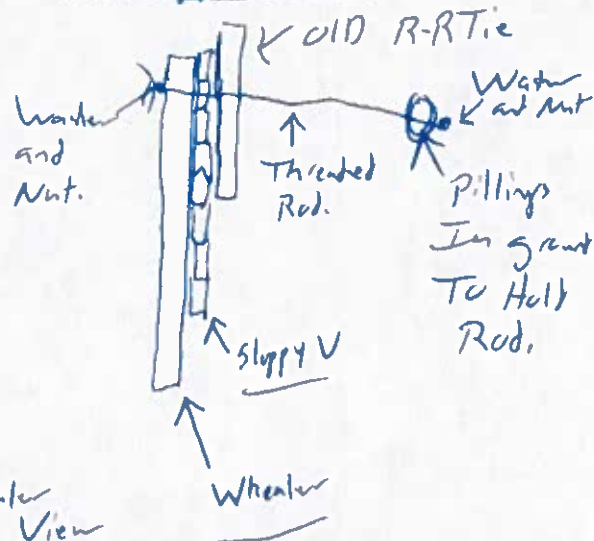 OLD R-R Tie
Washer
and
Nut.
Threaded
Rod.
Water
and Nut
Pillings
In grount
To Hold
Rod.
Sloppy V
Whealer
View